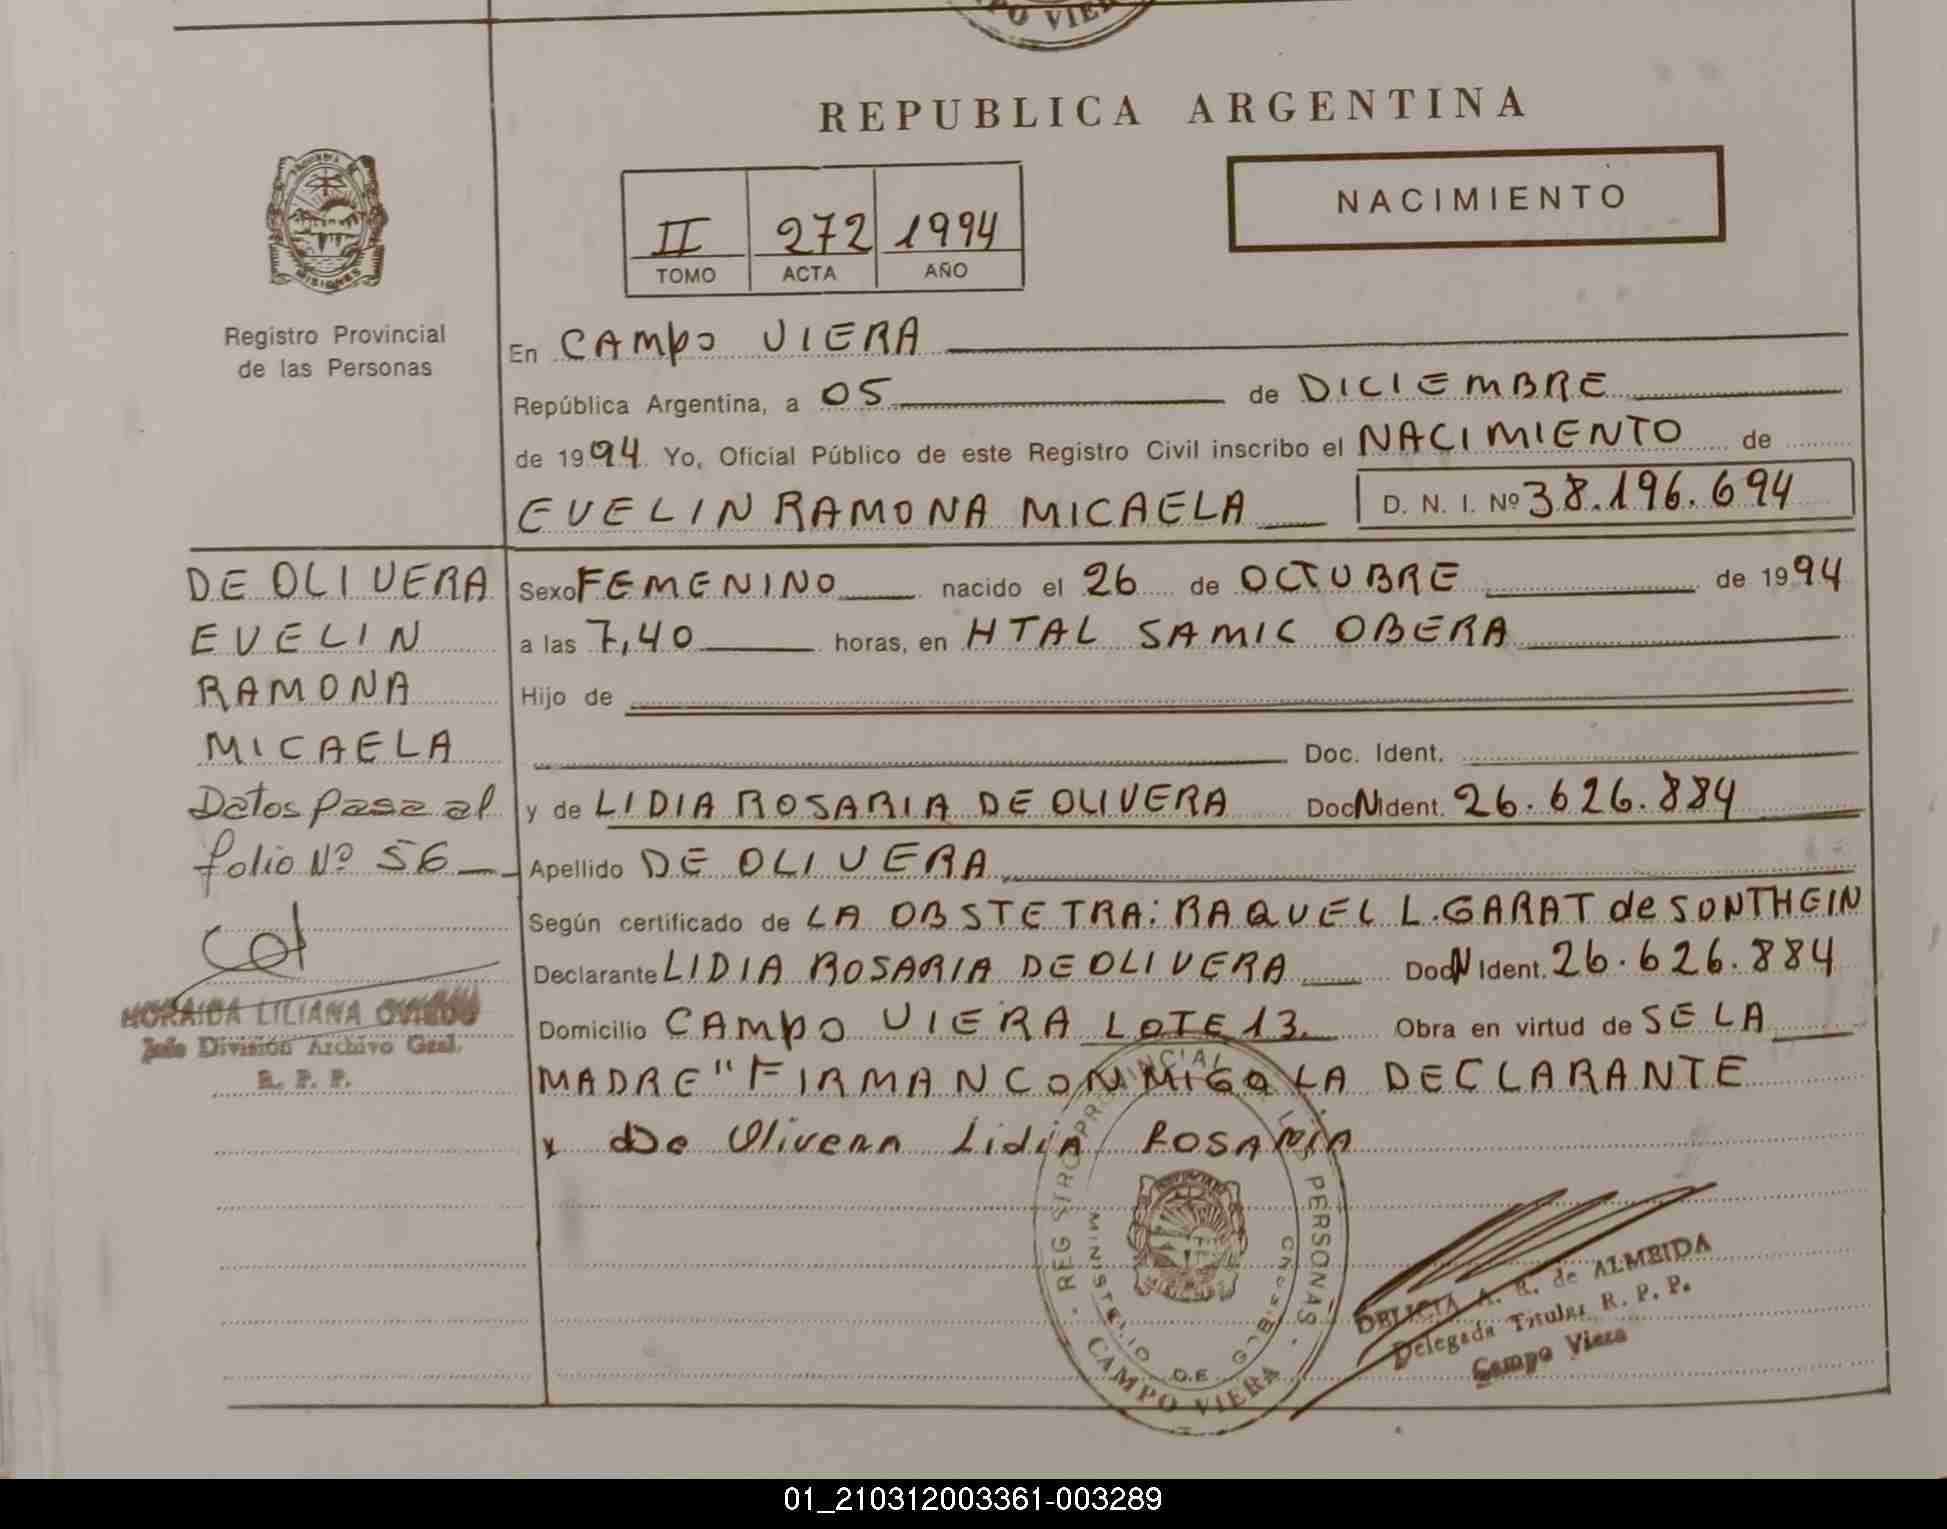 PO VIER
REPUBLICA ARGENTINA
NACIMIENTO
II 272 1994
TOMO ACTA AÑO
MISIONES
Registro Provincial
de las Personas
En CAMPO VIERA
República Argentina, a 05 de DICIEMBRE
de 1994 Yo, Oficial Público de este Registro Civil inscribo el NACIMIENTO de
EVELIN RAMONA MICAELA D. N. I. Nº 38.196.694
DE OLIVERA
EVELIN
RAMONA
MICAELA
Datos pasa al
folio Nº 56
HORAIDA LILIANA OVIEDO
Jefe División Archivo Gral.
R. P. P.
Sexo FEMENINO nacido el 26 de OCTUBRE de 1994
a las 7,40 horas, en HTAL SAMIC OBERA
Hijo de
Doc. Ident.
y de LIDIA ROSARIA DE OLIVERA Doc N Ident. 26.626.884
Apellido DE OLIVERA
Según certificado de LA OBSTETRA: RAQUEL L. GARAT de SONTHEIN
Declarante LIDIA ROSARIA DE OLIVERA Doc N Ident. 26.626.884
Domicilio CAMPO VIERA LOTE 13. Obra en virtud de SE LA
MADRE" FIRMAN CONMIGO LA DECLARANTE
x De Olivera Lidia ROSARIA
REGISTRO PROVINCIAL LAS PERSONAS
MINISTERIO DE
CAMPO VIERA
DELICIA A. R. de ALMEIDA
Delegada Titular R. P. P.
Campo Viera
01_210312003361-003289